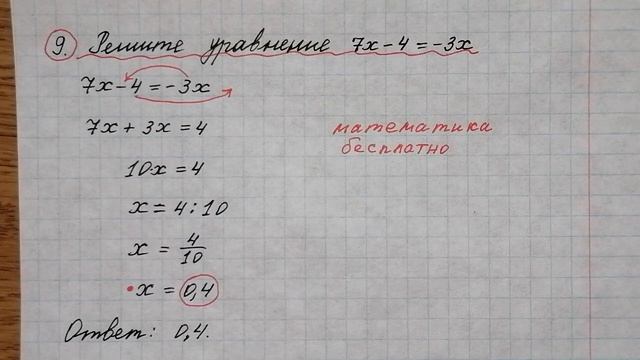 9. Решите уравнение 7x - 4 = -3x
7x - 4 = -3x
7x + 3x = 4
математика
бесплатно
10x = 4
x = 4 : 10
x = 4/10
x = 0,4
Ответ: 0,4.